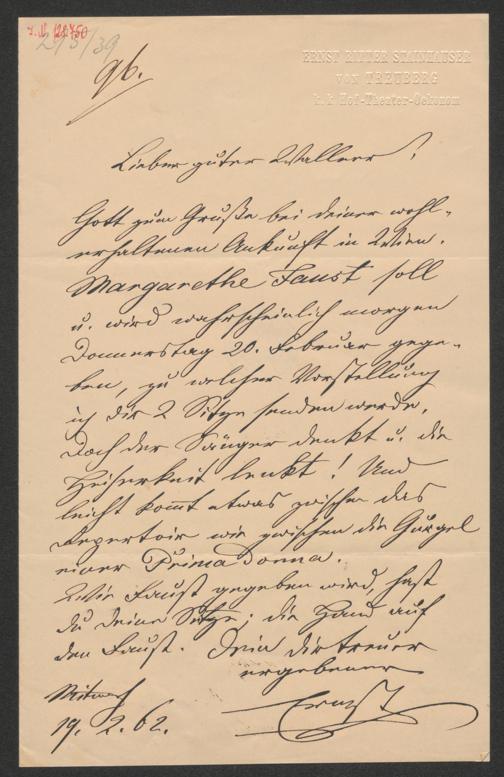 I.N. 128750
2/3/39
96.
ERNST RITTER STAINHAUSER
VON TREUBERG
k. k. Hof-Theater-Oekonom
Lieber guter Wallner!
Gott zum Gruße bei deiner wohl-
erhaltenen Ankunft in Wien.
Margarethe Faust soll
u. wird wahrscheinlich morgen
Donnerstag 20. Februar gege-
ben, zu welcher Vorstellung
ich dir 2 Sitze senden werde.
Doch der Sänger denkt u. die
Heiserkeit lenkt! Und
leicht kommt etwas zwischen das
Repertoir wie zwischen die Gurgel
einer Primadonna.
Wie Faust gegeben wird, hast
du deine Sitze; die Hand auf
den Faust. Dein dir treuer
ergebener
Ernst
Mittwoch
19. 2. 62.